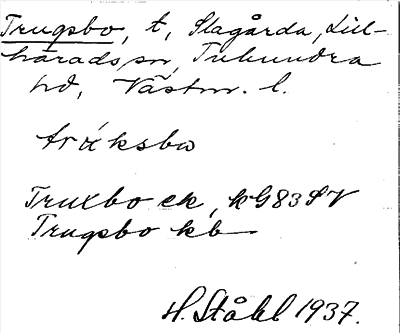 Trugsbo, t, Slagårda, Lill-
härads sn, Tuhundra
hd, Västm. l.
tráksbo
Truxbo ek, kG83SV
Trugsbo kb
H. Ståhl 1937.